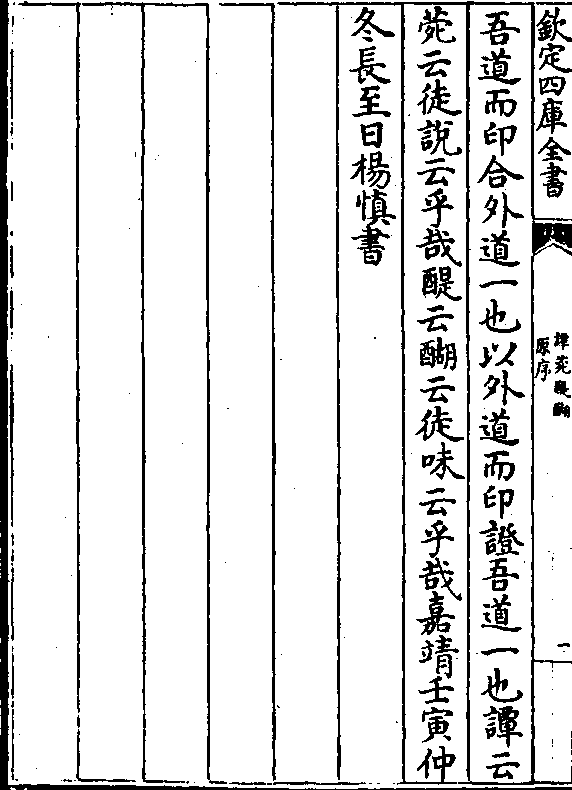 欽定四庫全書
譚菀醍醐
原序
一
吾道而印合外道一也以外道而印證吾道一也譚云
菀云徒說云乎哉醍云醐云徒味云乎哉嘉靖壬寅仲
冬長至日楊慎書